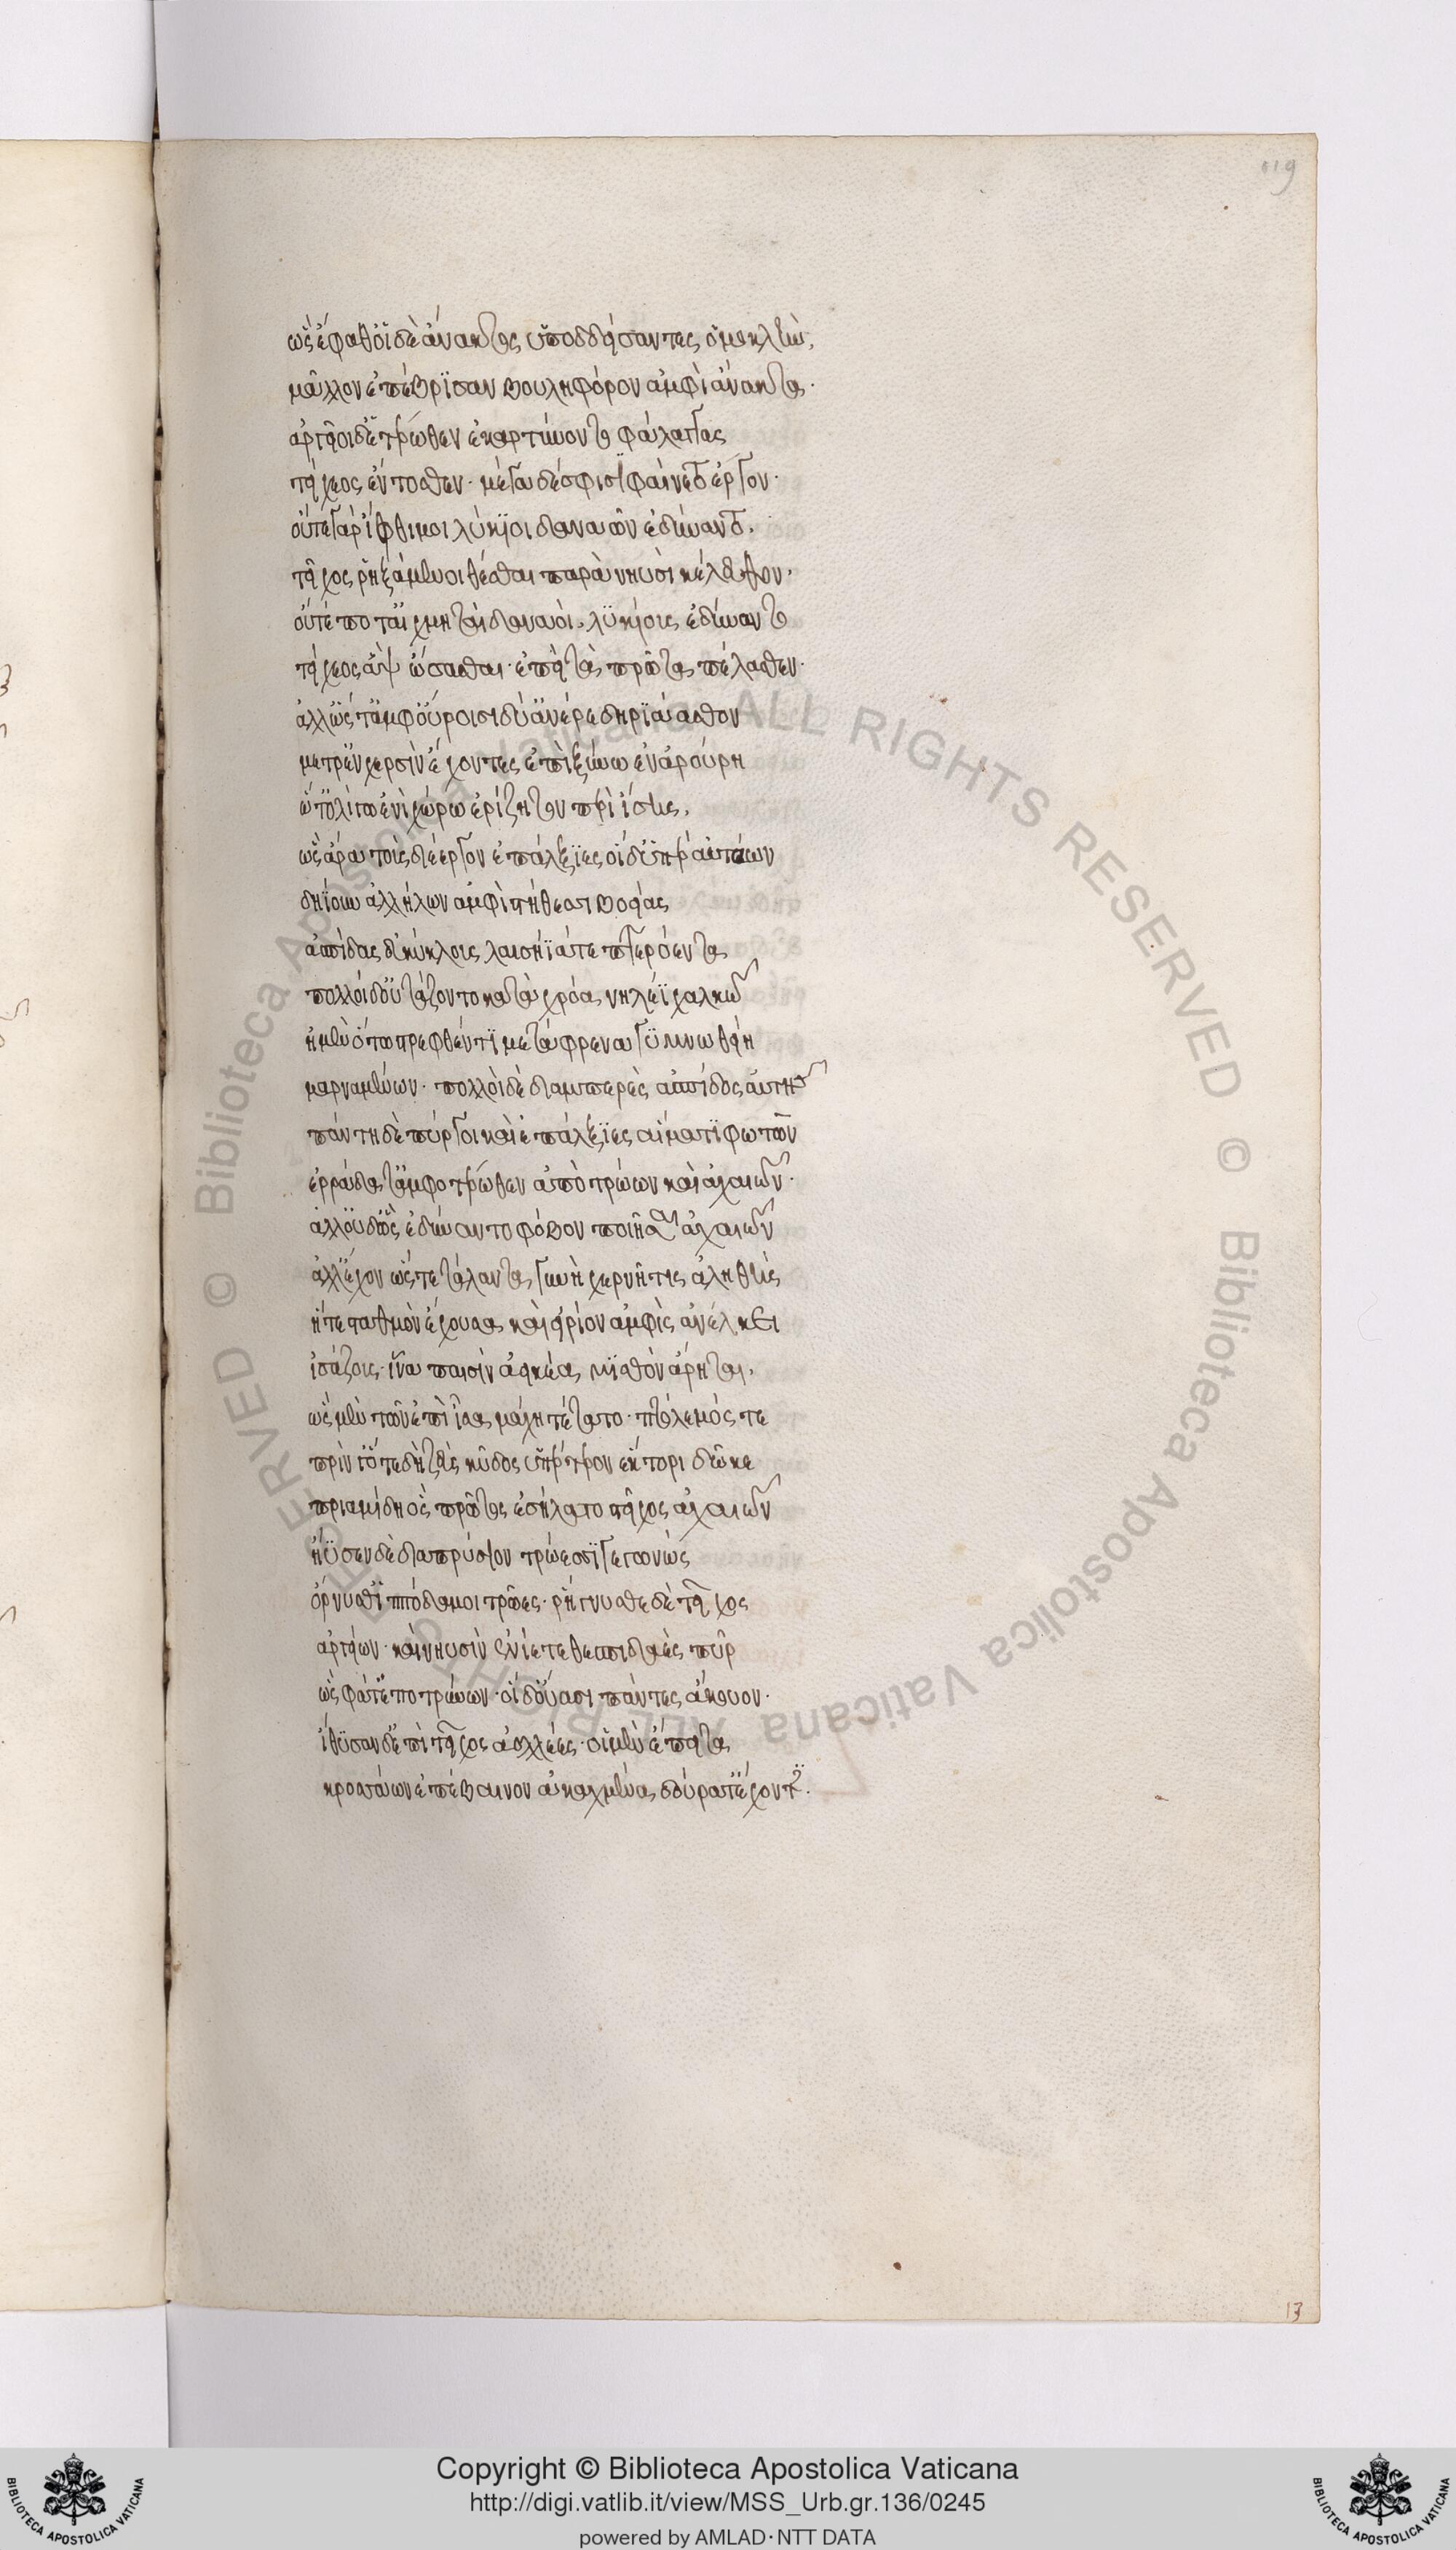 119
ὣς ἔφαθ' οἳ δὲ ἄνακτος ὑποδδείσαντες ὁμοκλὴν,
μᾶλλον ἐπέβρισαν βουληφόρον ἀμφὶ ἄνακτα.
ἀργεῖοι δ' ἑτέρωθεν ἐκαρτύνοντο φάλαγγας
τείχεος ἔντοσθεν· μέγα δέ σφισι φαίνετο ἔργον·
οὔτε γὰρ ἴφθιμοι λύκιοι δαναῶν ἐδύναντο.
τεῖχος ῥηξάμενοι θέσθαι παρὰ νηυσὶ κέλευθον.
οὔτέ ποτ' αἰχμηταὶ δαναοὶ. λυκίους ἐδύναντο
τείχεος ἂψ ὤσασθαι· ἐπεὶ τὰ πρῶτα πέλασθεν·
ἀλλ' ὥς τ' ἀμφ' οὔροισι δύ' ἀνέρε δηριάασθον
μέτρ' ἐν χερσὶν ἔχοντες ἐπιξύνω ἐν ἀρούρη
ὥ τ' ὀλίγω ἐνὶ χώρω ἐρίζητον περὶ ἴσης.
ὣς ἄρα τοὺς διέεργον ἐπάλξιες οἳ δ' ὑπὲρ αὐτάων
δηίουν ἀλλήλων ἀμφὶ στήθεσσι βοείας
ἀσπίδας εὐκύκλους λαισήϊά τε πτερόεντα
πολλοὶ δ' οὐτάζοντο κατὰ χρόα νηλέϊ χαλκῶ
ἠμὲν ὅτω στρεφθέντι μετάφρενα γυμνωθείη
μαρναμένων· πολλοὶ δὲ διαμπερὲς ἀσπίδος αὐτῆς
πάντη δὲ πύργοι καὶ ἐπάλξιες αἵματι φωτῶν
ἐρράδατ' ἀμφοτέρωθεν ἀπὸ τρώων καὶ ἀχαιῶν·
ἀλλ' οὐδ' ὣς ἐδύναντο φόβον ποιῆσαι ἀχαιῶν
ἀλλ' ἔχον ὥς τε τάλαντα γυνὴ χερνῆτις ἀληθὴς
ἥ τε σταθμὸν ἔχουσα καὶ εἴριον ἀμφὶς ἀνέλκει
ἰσάζουσ· ἵνα παισὶν ἀεικέα μισθὸν ἄρηται.
ὣς μὲν τῶν ἐπὶ ἶσα μάχη τέτατο· πτόλεμός τε
πρὶν γ' ὅτε δὴ ζεὺς κῦδος ὑπέρτερον ἕκτορι δῶκε
πριαμίδη ὃς πρῶτος ἐσήλατο τεῖχος ἀχαιῶν
ἤϋσεν δὲ διαπρύσιον τρώεσσι γεγωνώς
ὄρνυσθ' ἱππόδαμοι τρῶες· ῥήγνυσθε δὲ τεῖχος
ἀργείων· καὶ νηυσὶν ἐνίετε θεσπιδαὲς πῦρ
ὣς φάτ' ἐποτρύνων· οἱ δ' οὔασι πάντες ἄκουον·
ἴθυσαν δ' ἐπὶ τεῖχος ἀολλέες· οἱ μὲν ἔπειτα
κροσσάων ἐπέβαινον ἀκαχμένα δούρατ' ἔχοντες.
13
Copyright © Biblioteca Apostolica Vaticana
http://digi.vatlib.it/view/MSS_Urb.gr.136/0245
powered by AMLAD·NTT DATA